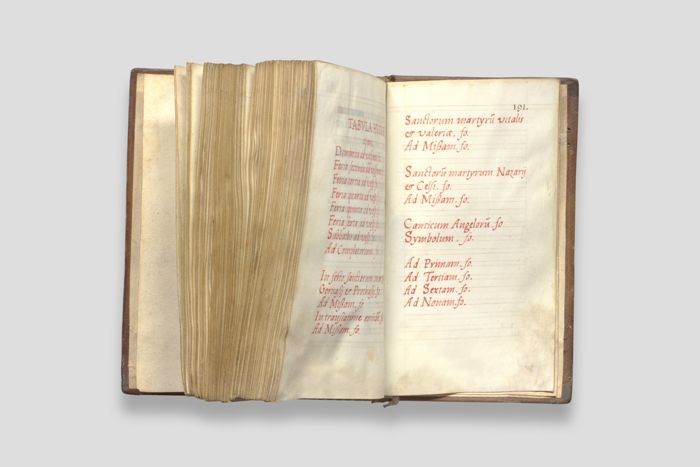 TABVLA
Dominica ad vesp
Feria secunda ad vesp
Feria tertia ad vesp.
Feria quarta ad vesp.
Feria quinta ad vesp.
Feria sexta ad vesp. fo.
Sabbato ad vesp. fo.
Ad Completorium.
In festo sanctorum
Geruasij & Prothasij. fo.
Ad Missam. fo.
In translatione
Ad Missam. fo.
191.
Sanctorum martyrũ vitalis
& valeriæ. fo.
Ad Missam. fo.
Sanctorũ martyrum Nazarij
& Celsi. fo.
Ad Missam. fo.
Canticum Angelorũ. fo
Symbolum. fo.
Ad Primam. fo.
Ad Tertiam. fo.
Ad Sextam. fo.
Ad Nonam. fo.